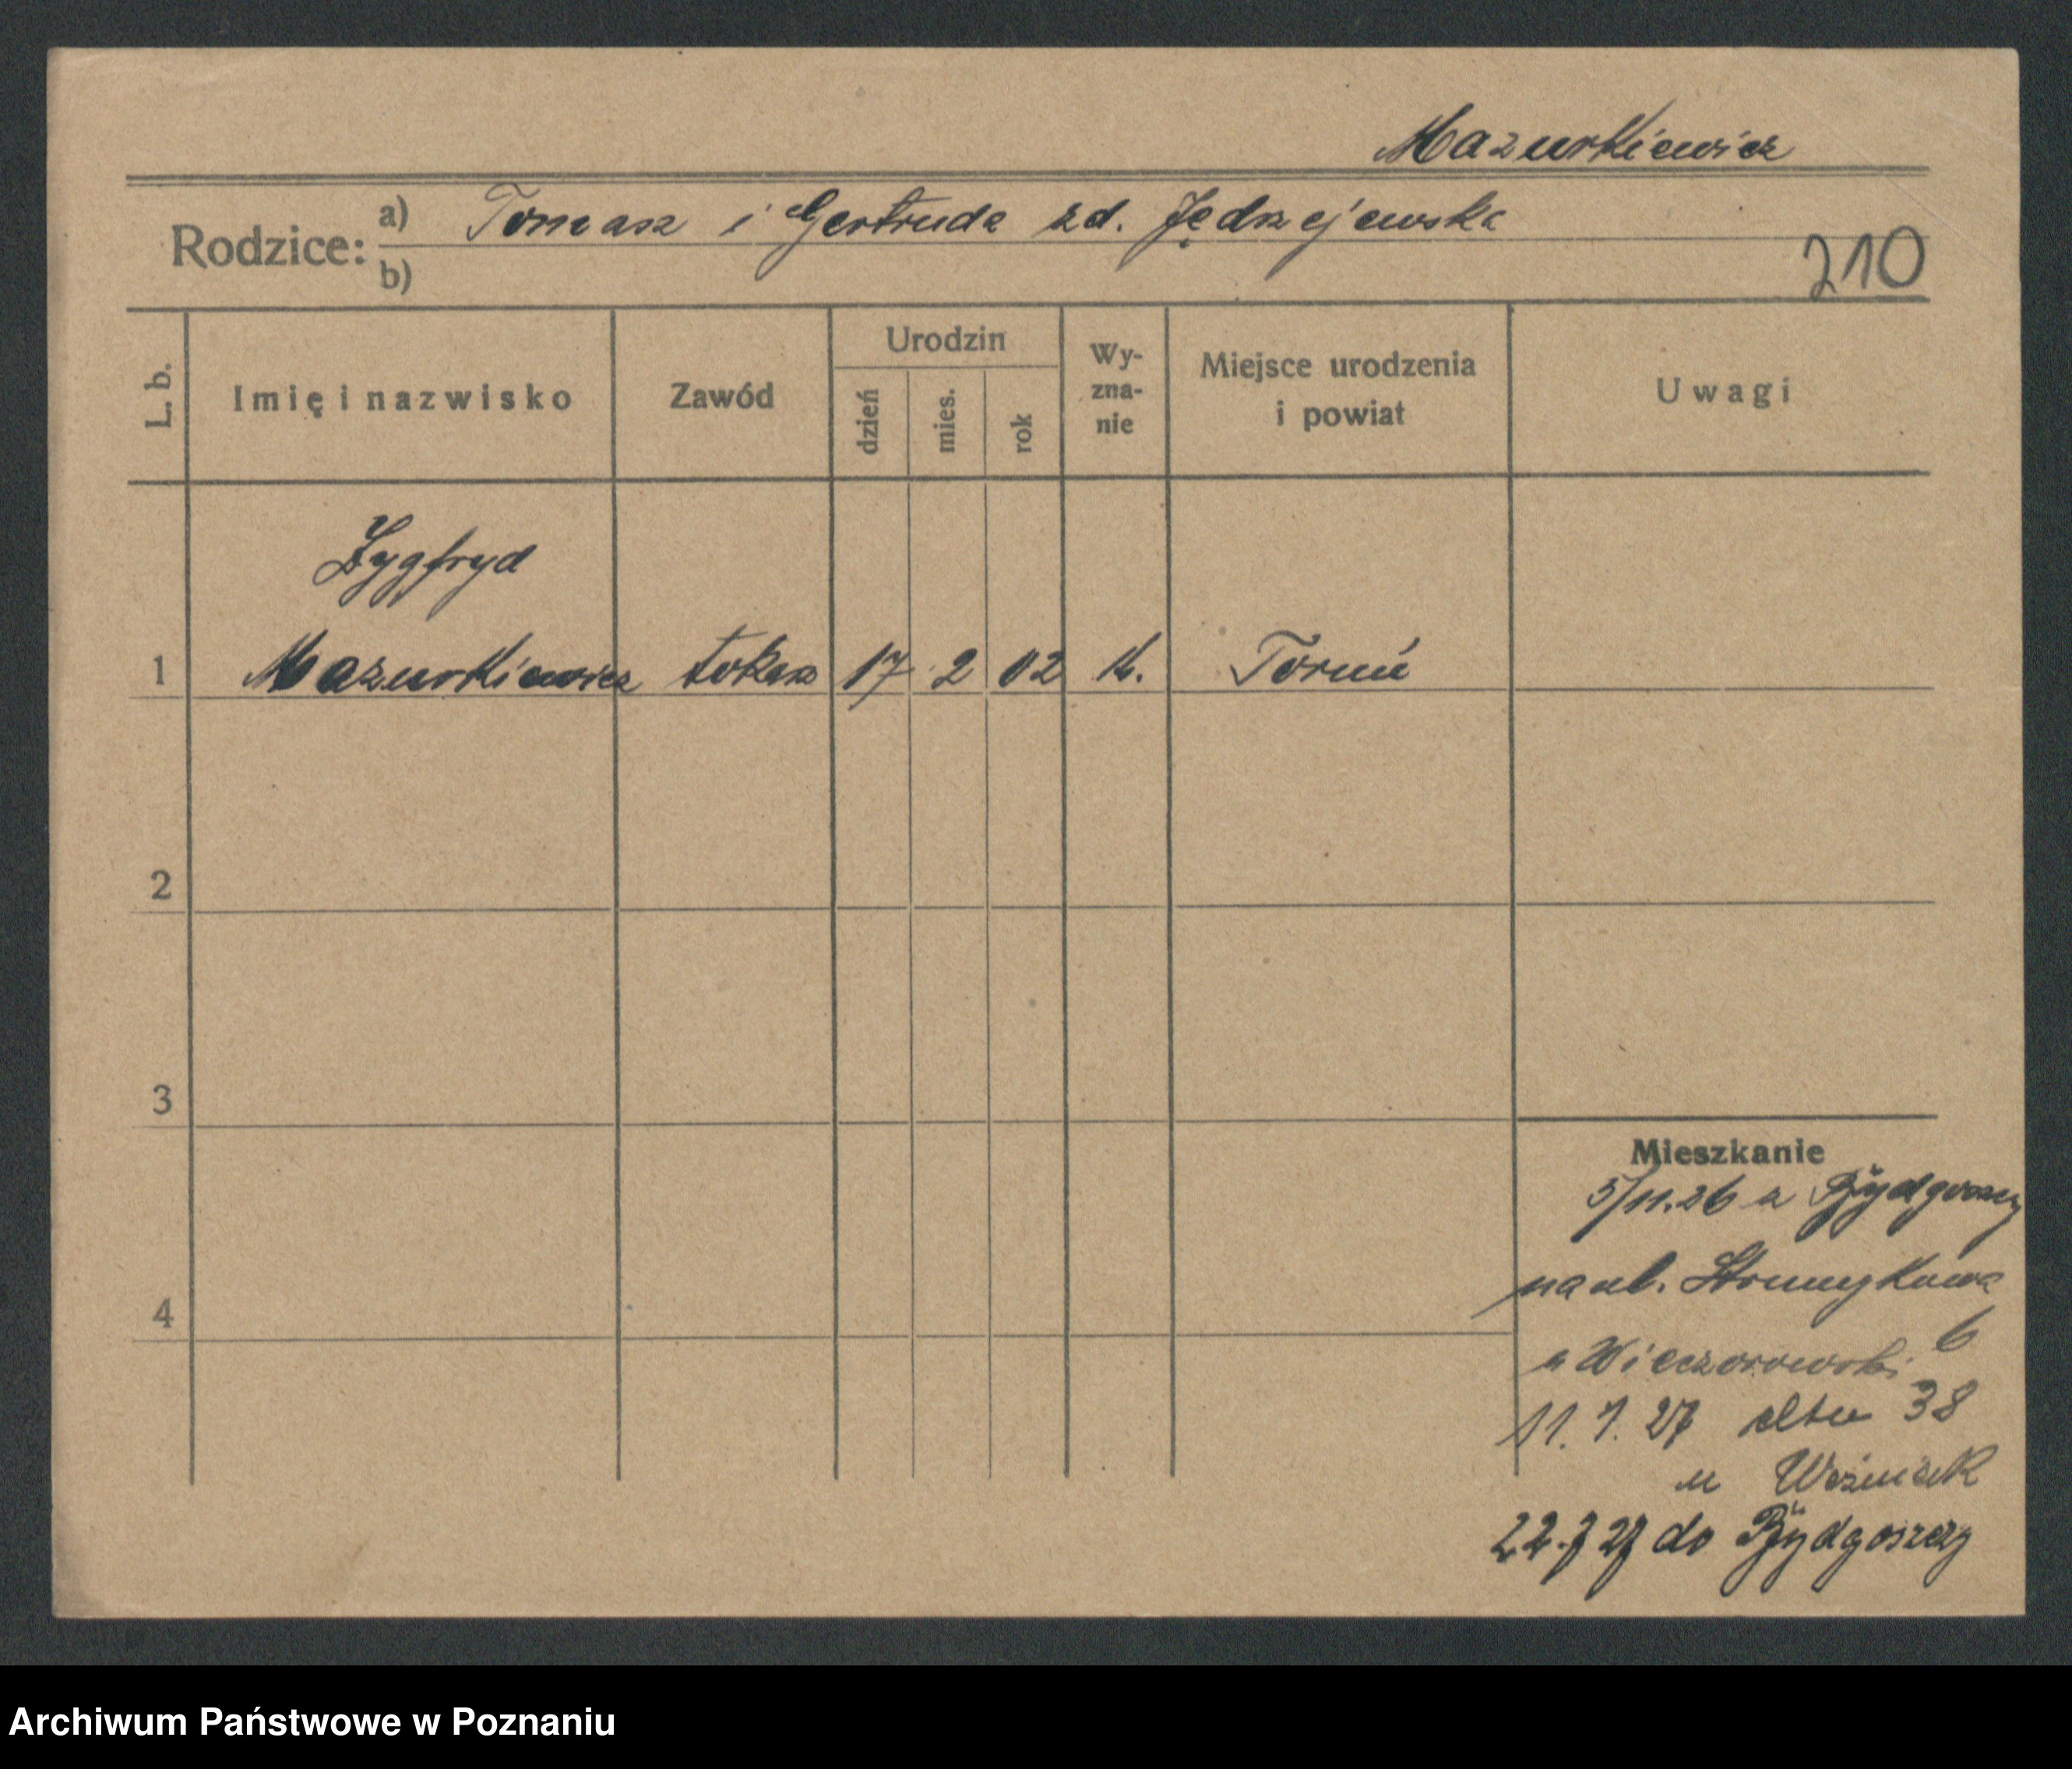 Mazurkiewicz
Rodzice: a) Tomasz i Gertruda zd. Jędrzejewska
b)
210
L. b.
Imię i nazwisko
Zawód
Urodzin
dzień
mies.
rok
Wy-
zna-
nie
Miejsce urodzenia
i powiat
Uwagi
Zygfryd
1 Mazurkiewicz tokarz 17 2 02 k. Toruń
2
3
4
Mieszkanie
5/11.26 z Bydgoszczy
na ul. Strumykowa
6
u Wieczorowski
11.1.27 38
u Woźniak
22.7 27 do Bydgoszczy
Archiwum Państwowe w Poznaniu